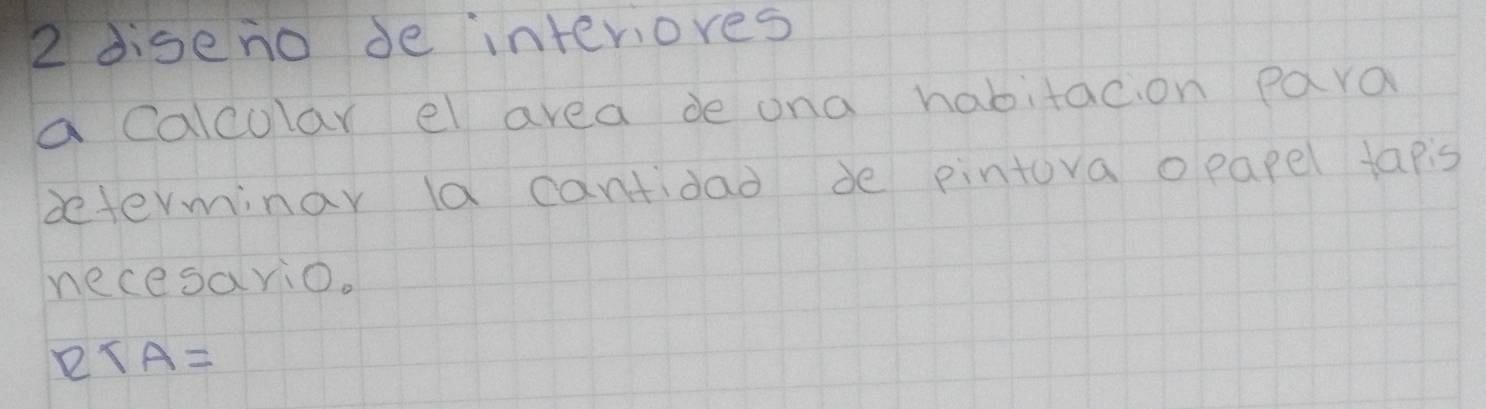 2 diseño de interiores
a calcular el area de una habitacion para
determinar la cantidad de pintura o papel tapis
necesario.
RTA=